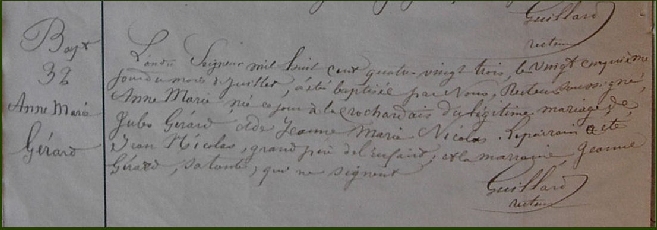 Guillard
recteur
Bapt
32
Anne Marie
Gérard
L'an du Seigneur mil huit cent quatre-vingt trois, le vingt cinquième
jour du mois de juillet, a été baptisée par Nous, Recteur soussigné,
Anne Marie née ce jour à la rochardais du légitime mariage de
Jules Gérard et de Jeanne Marie Nicolas. Le parrain a été
Jean Nicolas, grand père de l'enfant, et la marraine, Jeanne
Gérard, sa tante, qui ne signent
Guillard
recteur